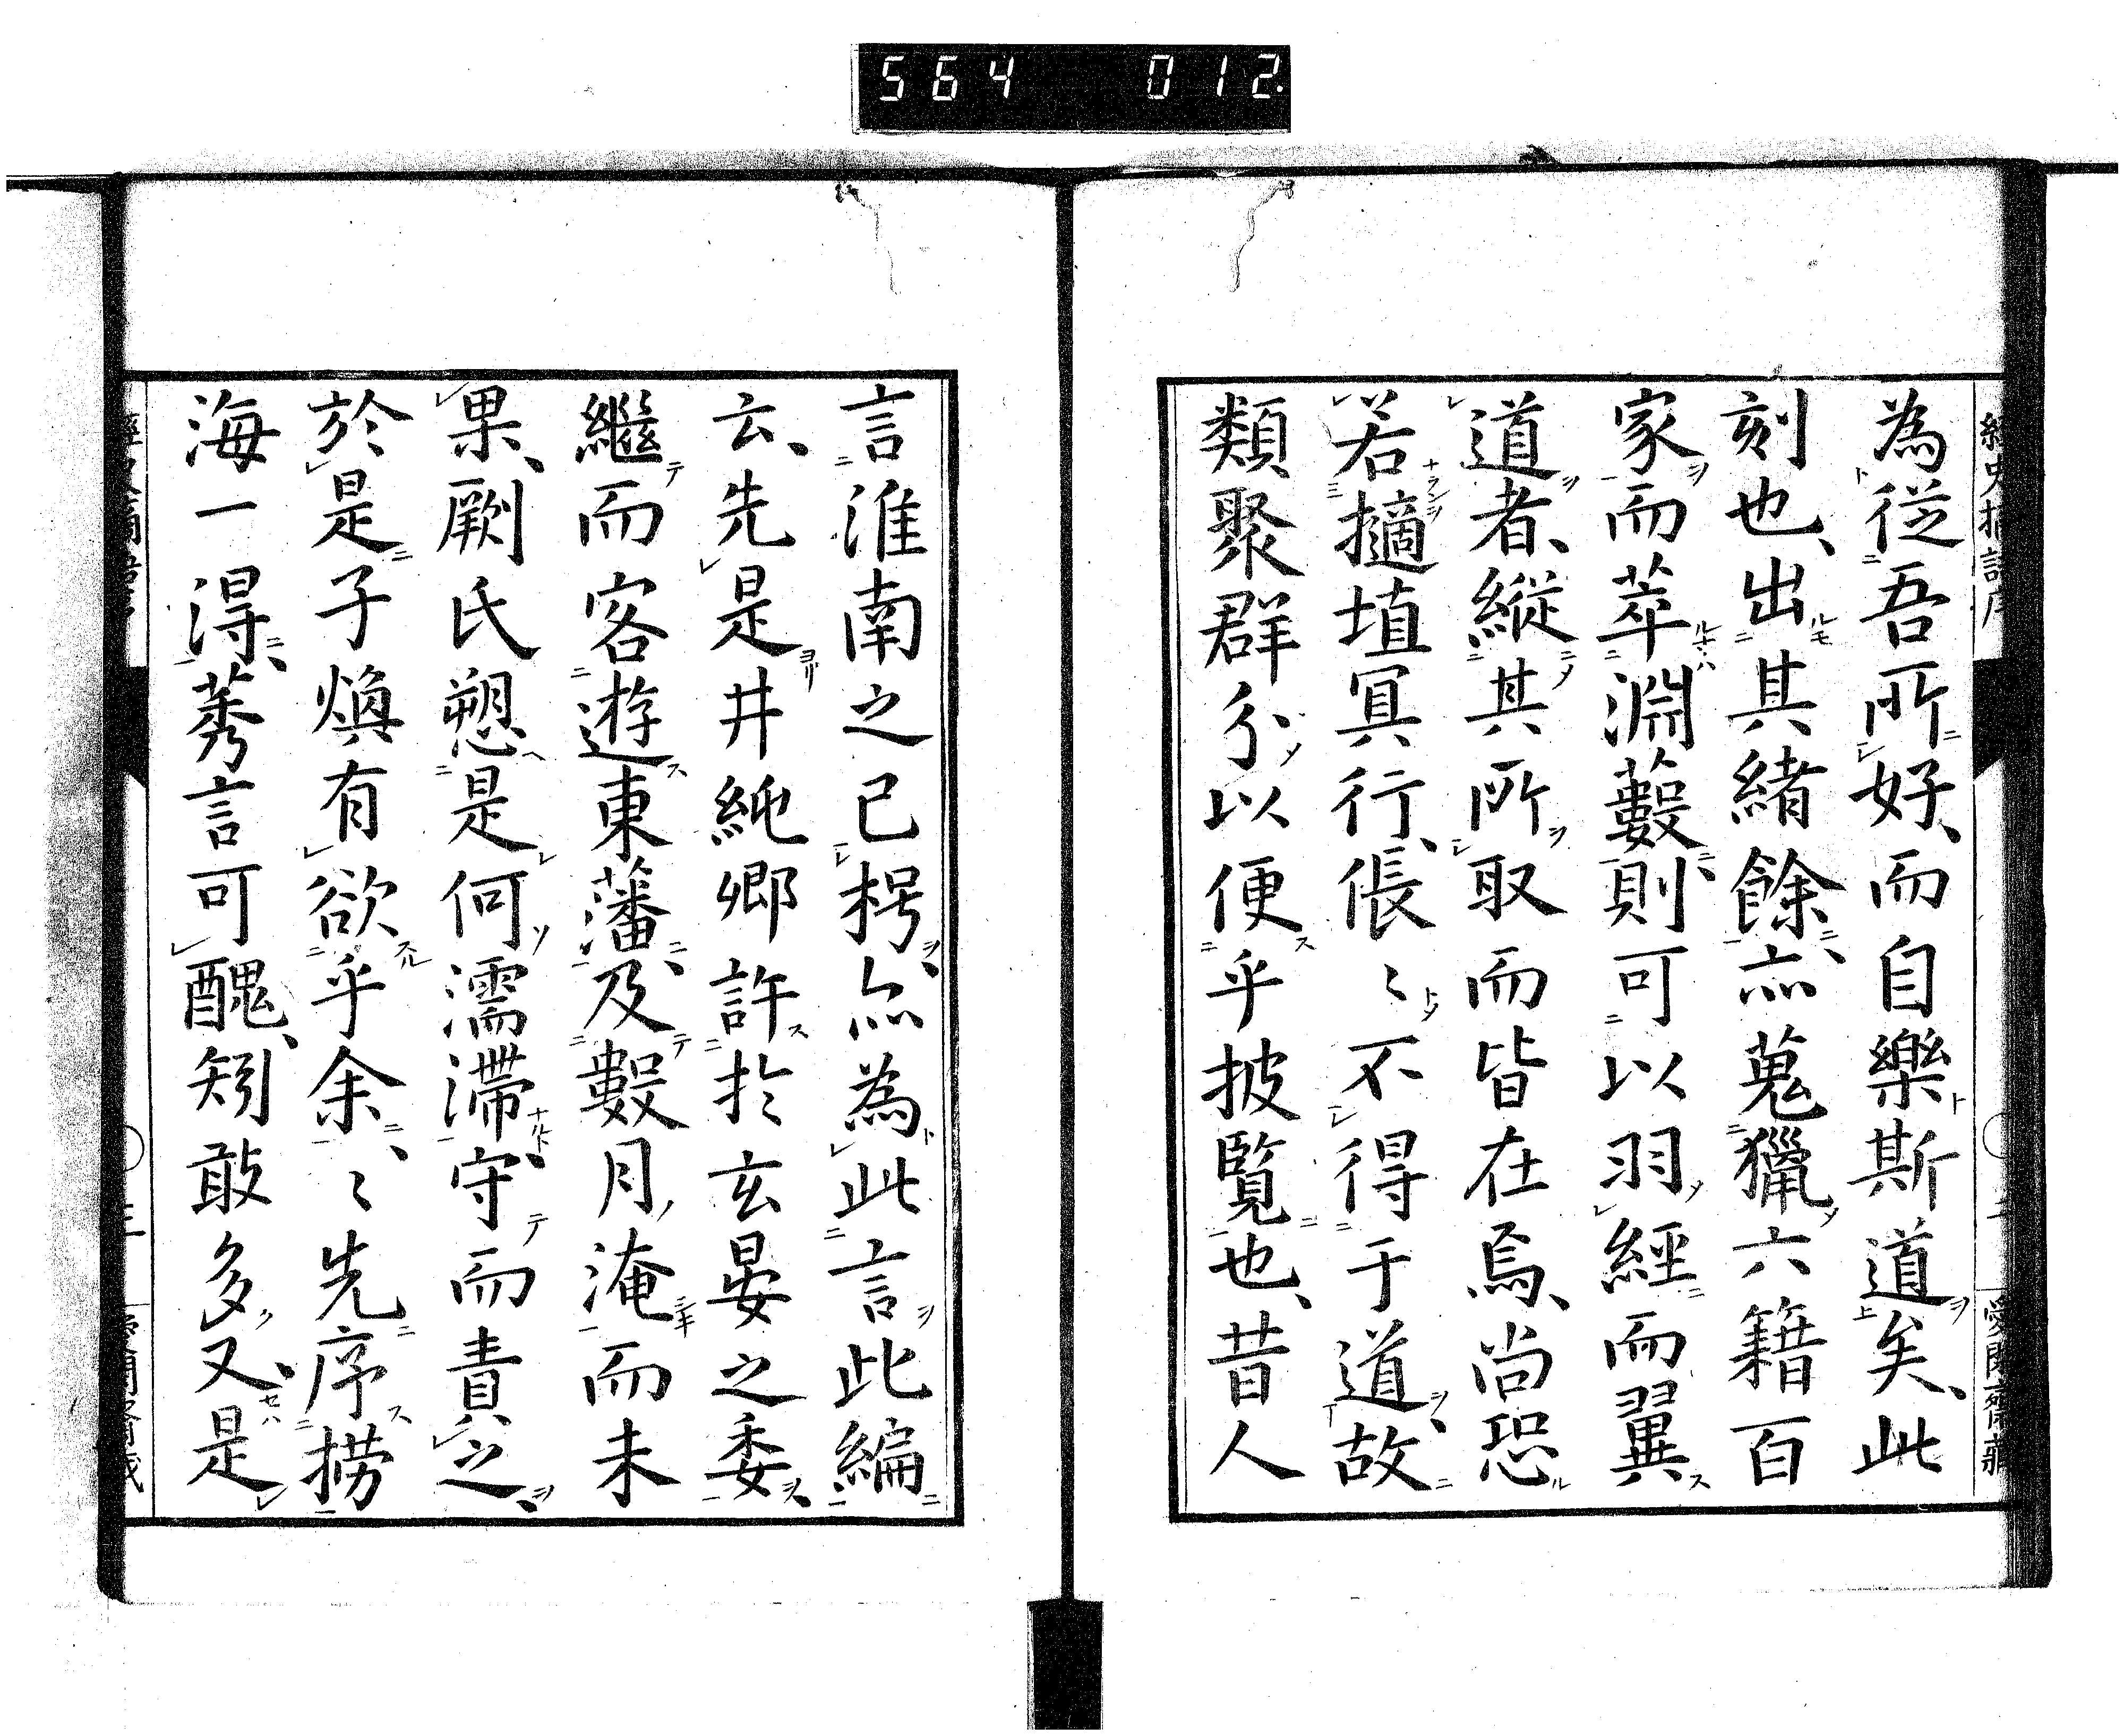 564 012
為從吾所好、而自樂斯道矣、此
刻也、出其緒餘、亦蒐獵六籍百
家而萃淵藪、則可以羽經而翼
道者、縱其所取而皆在焉、尚恐
若擿埴冥行、倀〻不得于道、故
類聚群分以便乎披覧也、昔人
言淮南之已楞、亦為此言此編
云、先是井純卿許於玄晏之委、
繼而客遊東藩、及數月、淹而未
果、厥氏愬是何濡滯、守而責之、
於是子煥有欲乎余、〻先序撈
海一得、莠言可醜、矧敢多又、是
愛閑齋藏